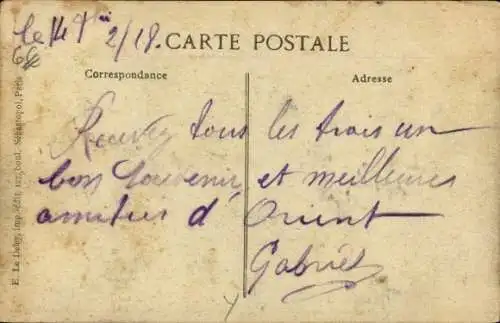 Le 14 9bre
2/18.
CARTE POSTALE
Correspondance
Adresse
Recevez tous les trois un
bon souvenir, et meilleures
amities d'Orient
Gabriel
E. Le Deley, imp.-édit. 127, boul. Sébastopol, Paris